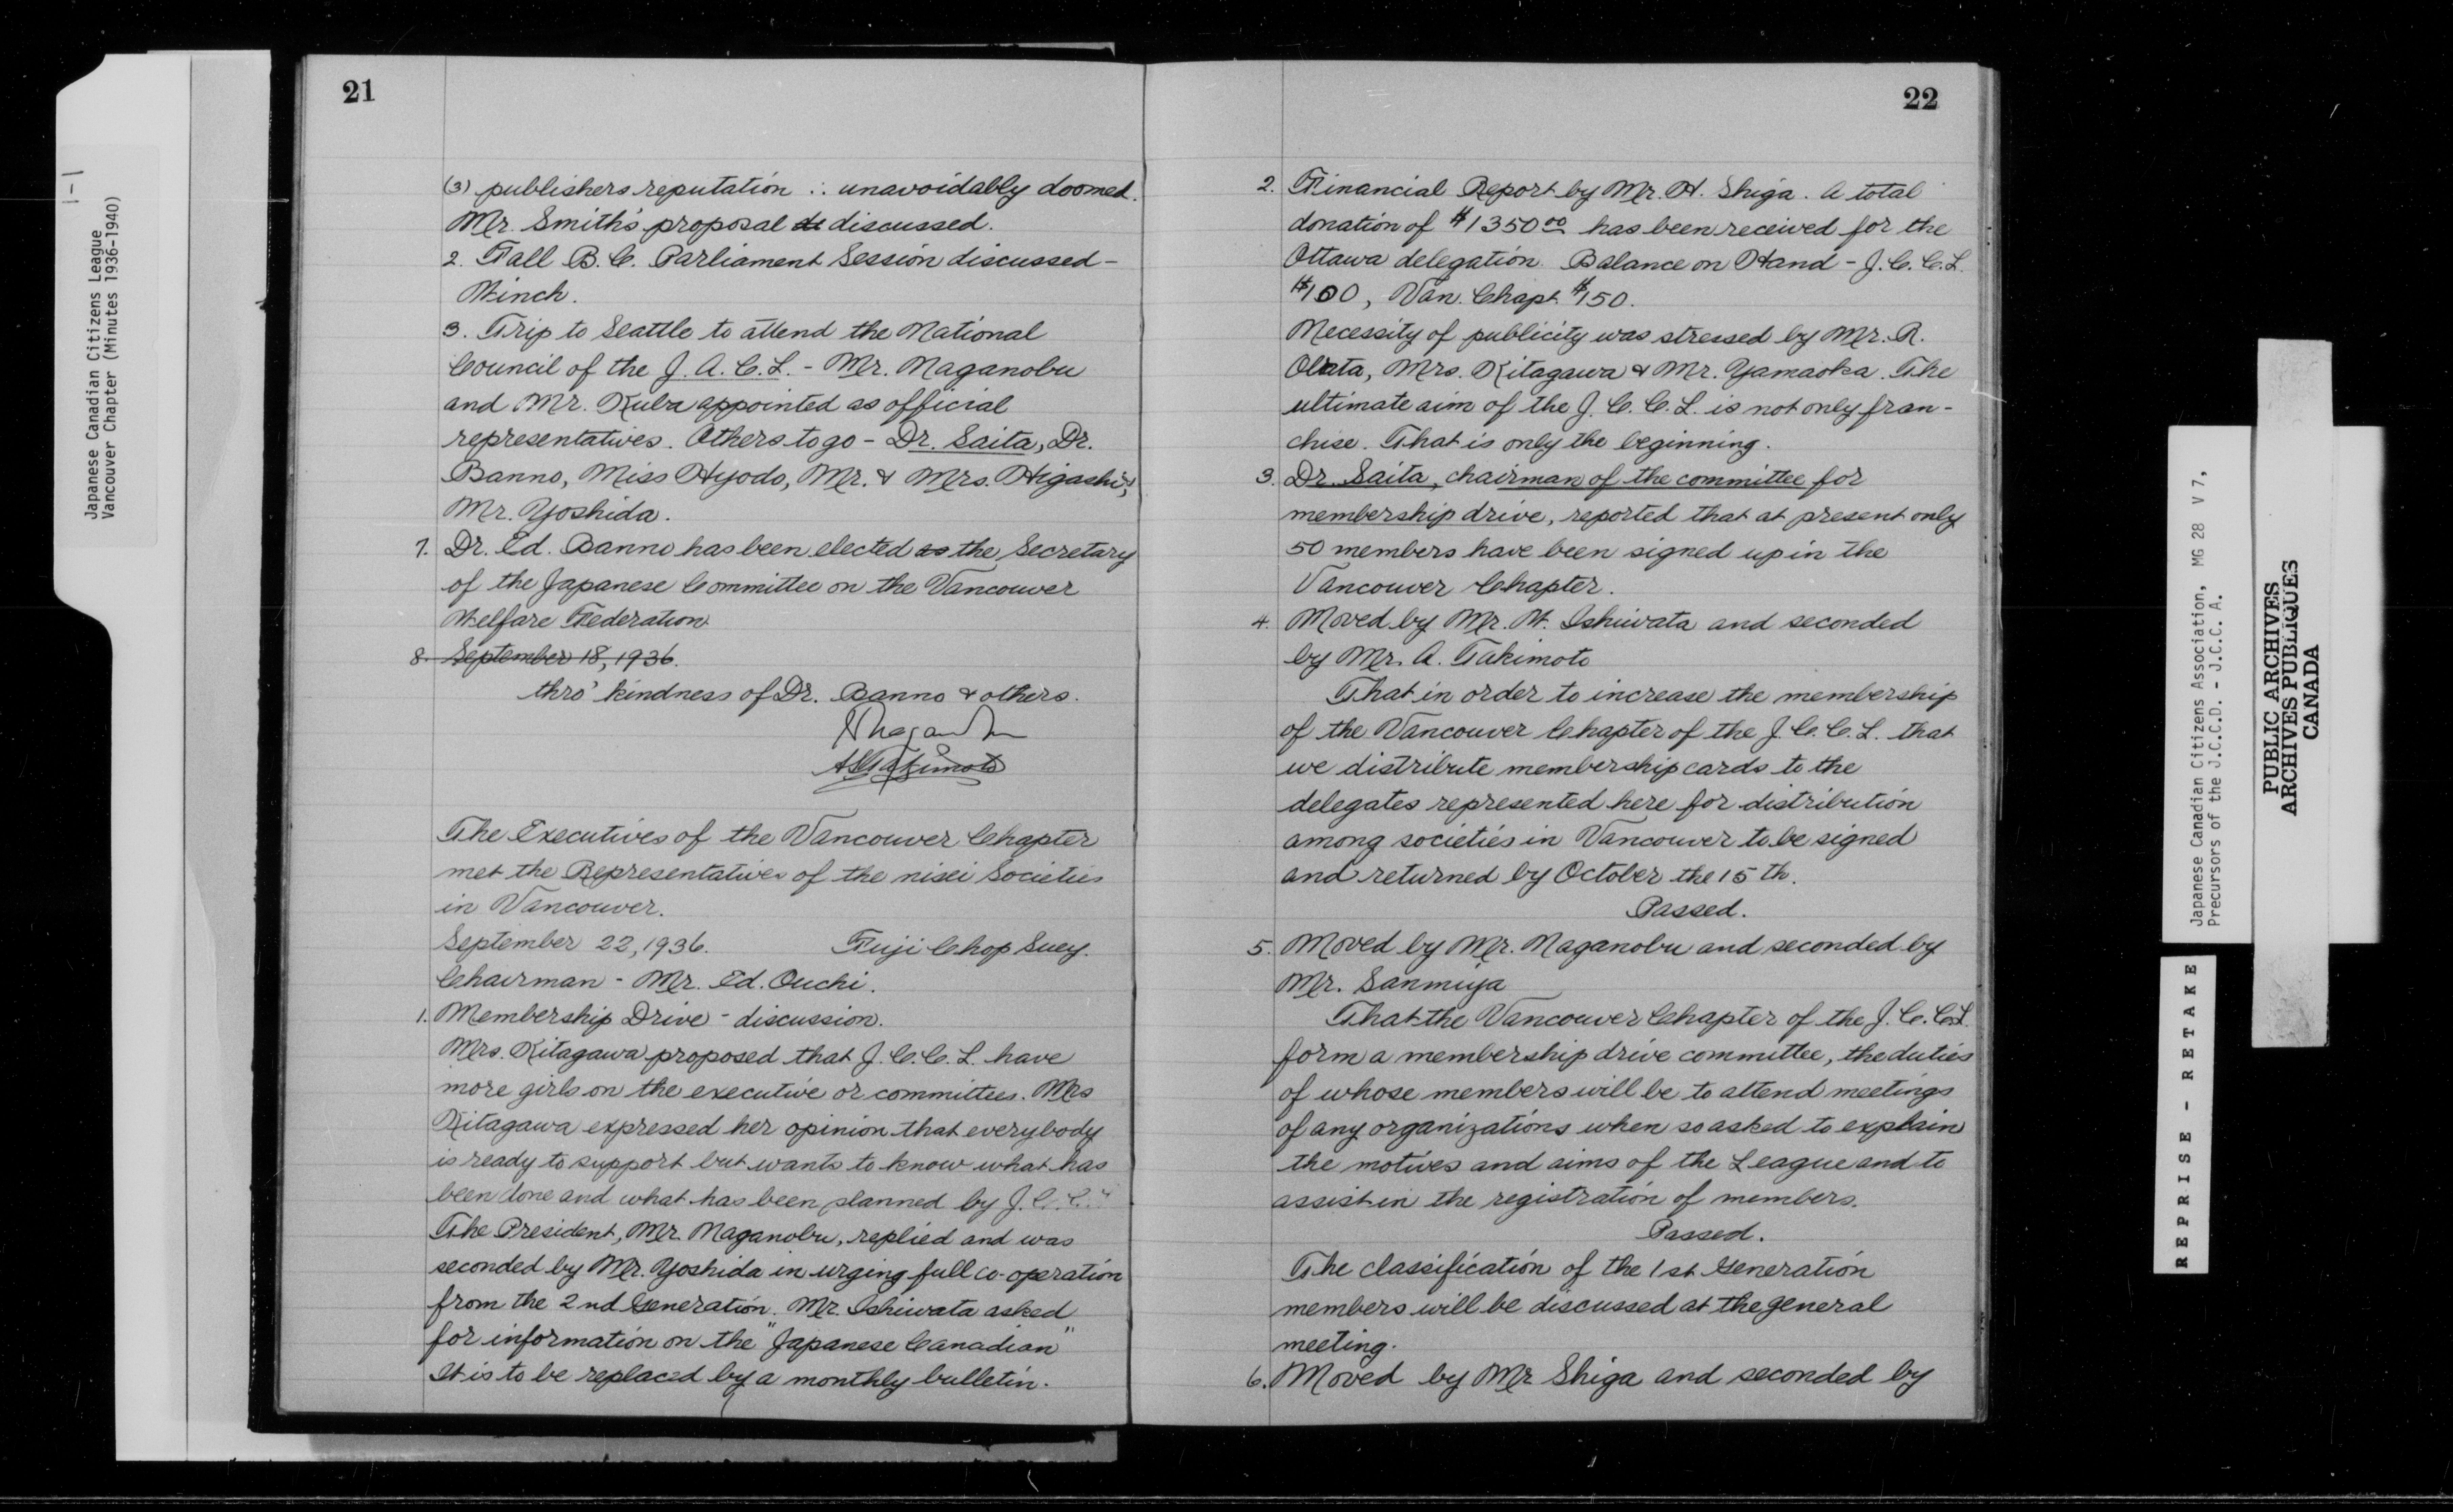 1-1
Japanese Canadian Citizens League
Vancouver Chapter (Minutes 1936-1940)
21
(3) publishers reputation ∴ unavoidably doomed.
Mr. Smith's proposal discussed.
2. Fall B.C. Parliament Session discussed -
Winch.
3. Trip to Seattle to attend the National
Council of the J.A.C.L. - Mr. Naganobu
and Mr. Kuba appointed as official
representatives. Others to go - Dr. Saita, Dr.
Banno, Miss Hyodo, Mr. & Mrs. Higashi,
Mr. Yoshida.
7. Dr. Ed. Banno has been elected as the Secretary
of the Japanese Committee on the Vancouver
Welfare Federation
8. September 18, 1936.
thro' kindness of Dr. Banno & others.
The Executives of the Vancouver Chapter
met the Representatives of the nisei Societies
in Vancouver.
September 22, 1936. Fuji Chop Suey.
Chairman - Mr. Ed. Ouchi.
1. Membership Drive - discussion.
Mrs. Kitagawa proposed that J.C.C.L. have
more girls on the executive or committees. Mrs
Kitagawa expressed her opinion that everybody
is ready to support but wants to know what has
been done and what has been planned by J.C.C.L
The President, Mr. Naganobu, replied and was
seconded by Mr. Yoshida in urging full co-operation
from the 2nd Generation. Mr. Ishiwata asked
for information on the "Japanese Canadian"
It is to be replaced by a monthly bulletin.
22
2. Financial Report by Mr. H. Shiga. A total
donation of $1350.00 has been received for the
Ottawa delegation. Balance on Hand - J.C.C.L.
$100, Van. Chapt. $150.
Necessity of publicity was stressed by Mr. R.
Obata, Mrs. Kitagawa & Mr. Yamaoka. The
ultimate aim of the J.C.C.L. is not only fran-
chise. That is only the beginning.
3. Dr. Saita, chairman of the committee for
membership drive, reported that at present only
50 members have been signed up in the
Vancouver Chapter.
4. Moved by Mr. W. Ishiwata and seconded
by Mr. A. Takimoto
That in order to increase the membership
of the Vancouver Chapter of the J.C.C.L. that
we distribute membership cards to the
delegates represented here for distribution
among societies in Vancouver to be signed
and returned by October the 15 th.
Passed.
5. Moved by Mr. Naganobu and seconded by
Mr. Sanmiya
That the Vancouver Chapter of the J.C.C.L.
form a membership drive committee, the duties
of whose members will be to attend meetings
of any organizations when so asked to explain
the motives and aims of the League and to
assist in the registration of members.
Passed.
The classification of the 1st Generation
members will be discussed at the general
meeting.
6. Moved by Mr Shiga and seconded by
Japanese Canadian Citizens Association, MG 28 V 7,
Precursors of the J.C.C.D. - J.C.C.A.
PUBLIC ARCHIVES
ARCHIVES PUBLIQUES
CANADA
REPRISE - RETAKE